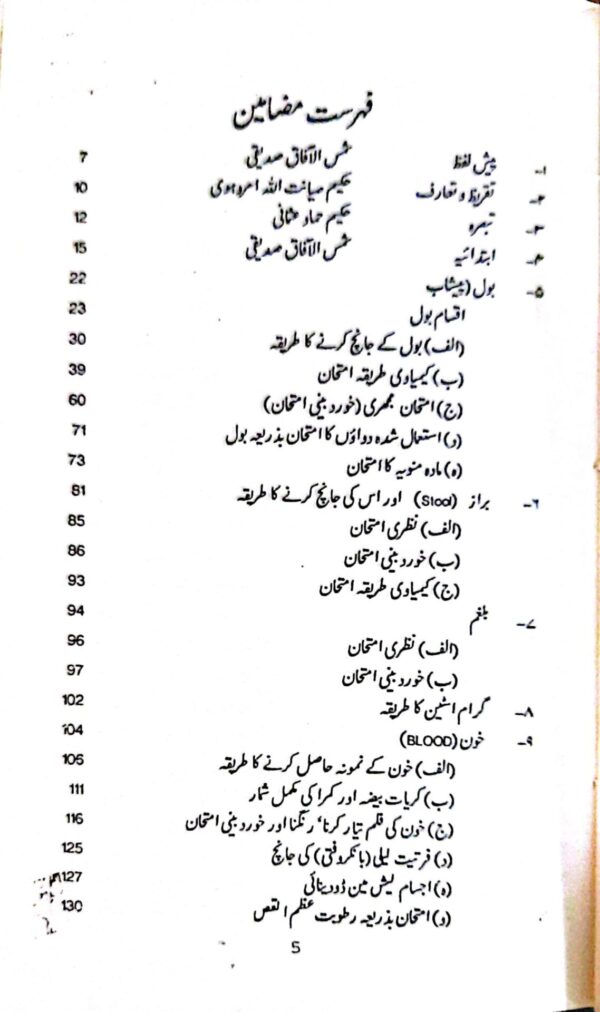 فہرست مضامین
۱- پیش لفظ شمس الآفاق صدیقی 7
۲- تقریظ و تعارف حکیم صیانت اللہ امروہوی 10
۳- تبصرہ حکیم حماد عثمانی 12
۴- ابتدائیہ شمس الآفاق صدیقی 15
۵- بول (پیشاب 22
اقسام بول 23
(الف) بول کے جانچ کرنے کا طریقہ 30
(ب) کیمیاوی طریقہ امتحان 39
(ج) امتحان مجہری (خوردبینی امتحان) 60
(د) استعمال شدہ دواؤں کا امتحان بذریعہ بول 71
(ہ) مادہ منویہ کا امتحان 73
۶- براز (Stool) اور اس کی جانچ کرنے کا طریقہ 81
(الف) نظری امتحان 85
(ب) خوردبینی امتحان 86
(ج) کیمیاوی طریقہ امتحان 93
۷- بلغم 94
(الف) نظری امتحان 96
(ب) خوردبینی امتحان 97
۸- گرام اسٹین کا طریقہ 102
۹- خون (BLOOD) 104
(الف) خون کے نمونہ حاصل کرنے کا طریقہ 106
(ب) کریات بیضہ اور کمرا کی مکمل شمار 111
(ج) خون کی فلم تیار کرنا، رنگنا اور خوردبینی امتحان 116
(د) فرتیت لیلی (بانکروفتی) کی جانچ 125
(ہ) اجسام لیش مین ڈونیائی 127
(و) امتحان بذریعہ رطوبت عظم القص 130
5